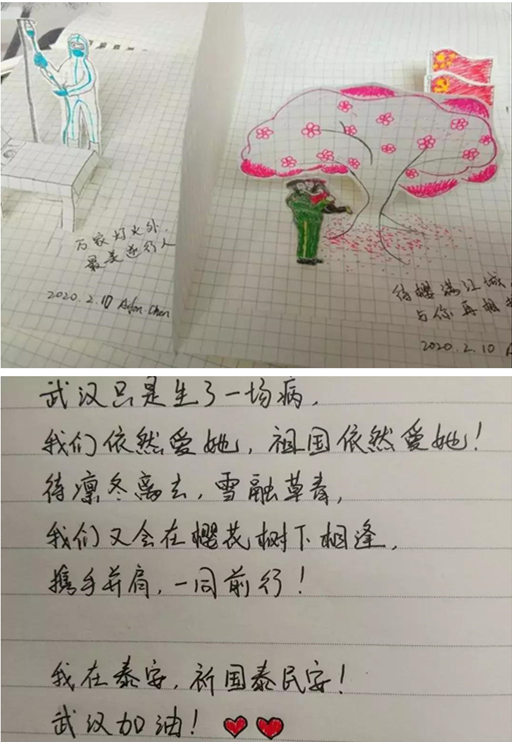 万家灯火外,
最美逆行人
2020.2.10 Chen
待樱满江城
与你再相
2020.2.10
武汉只是生了一场病,
我们依然爱她,祖国依然爱她!
待凛冬离去,雪融草青,
我们又会在樱花树下相逢,
携手并肩,一同前行!
我在泰安,祈国泰民安!
武汉加油!